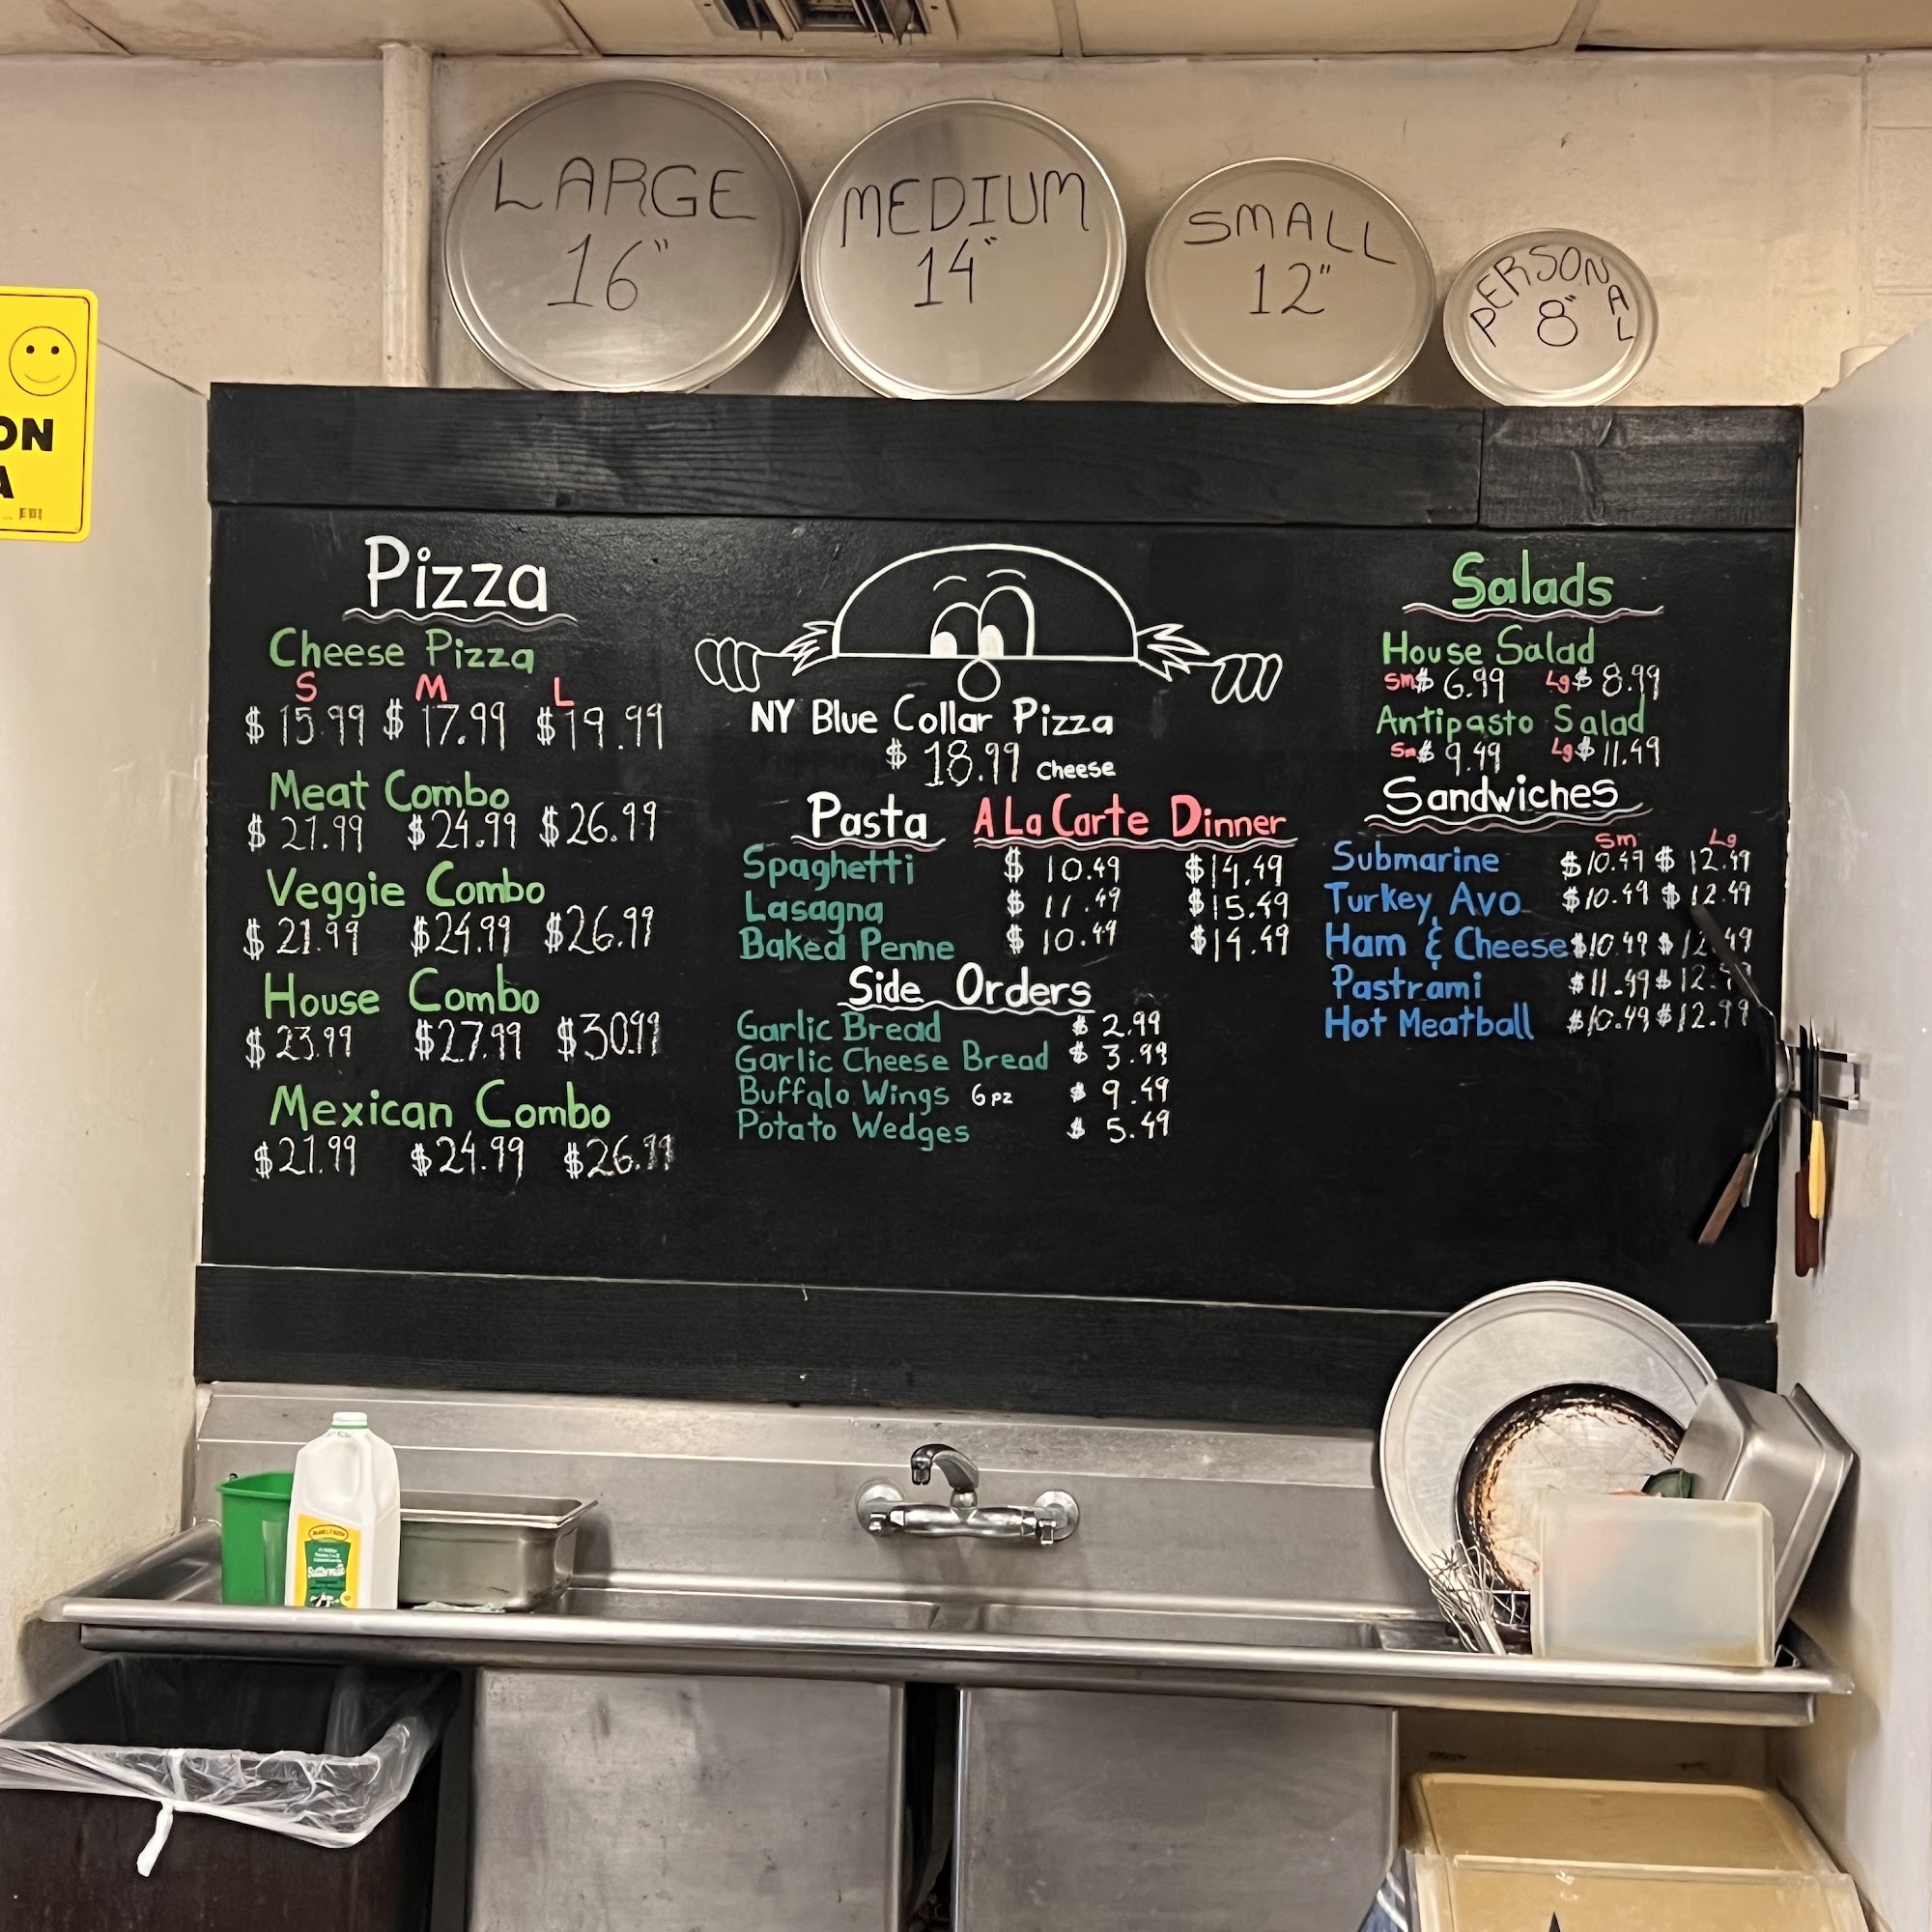 LARGE
16"
MEDIUM
14"
SMALL
12"
PERSONAL
8"
ON
A
Pizza
Cheese Pizza
S M L
$ 15.99 $ 17.99 $19.99
Meat Combo
$ 21.99 $24.99 $26.99
Veggie Combo
$ 21.99 $24.99 $26.99
House Combo
$ 23.99 $27.99 $30.99
Mexican Combo
$21.99 $24.99 $26.99
NY Blue Collar Pizza
$ 18.99 cheese
Pasta A La Carte Dinner
Spaghetti $ 10.49 $14.49
Lasagna $ 11.49 $15.49
Baked Penne $ 10.49 $14.49
Side Orders
Garlic Bread $ 2.99
Garlic Cheese Bread $ 3.99
Buffalo Wings 6pz $ 9.49
Potato Wedges $ 5.49
Salads
House Salad
Sm$ 6.99 Lg$ 8.99
Antipasto Salad
Sm$ 9.49 Lg$ 11.49
Sandwiches
Sm Lg
Submarine $10.49 $ 12.49
Turkey Avo $10.49 $ 12.49
Ham & Cheese $10.49 $ 12.49
Pastrami $11.49 $
Hot Meatball $10.49 $12.99
Buttermilk